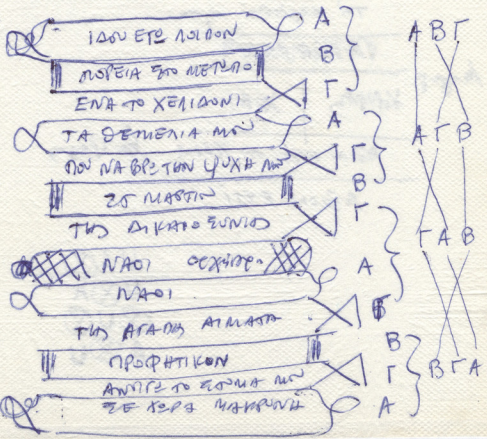 ΙΔΟΥ ΕΓΩ ΛΟΙΠΟΝ Α
ΠΟΡΕΙΑ ΣΤΟ ΜΕΤΩΠΟ Β
ΕΝΑ ΤΟ ΧΕΛΙΔΟΝΙ Γ
ΤΑ ΘΕΜΕΛΙΑ ΜΟΥ Α
ΠΟΥ ΝΑ ΒΡΩ ΤΗΝ ΨΥΧΗ ΜΟΥ Γ
ΜΑΡΤΙΝ Β
ΤΗΣ ΔΙΚΑΙΟΣΥΝΗΣ Γ
ΝΑΟΙ Α
ΝΑΟΙ
ΤΗΣ ΑΓΑΠΗΣ ΑΙΜΑΤΑ Γ
ΠΡΟΦΗΤΙΚΟΝ Β
ΑΝΟΙΓΩ ΤΟ ΣΤΟΜΑ ΜΟΥ Γ
ΣΕ ΧΩΡΑ ΜΑΚΡΥΝΗ Α
Α Β Γ
Α Γ Β
Γ Α Β
Β Γ Α